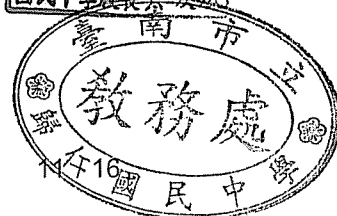 臺南市立歸仁國民中學
教務處